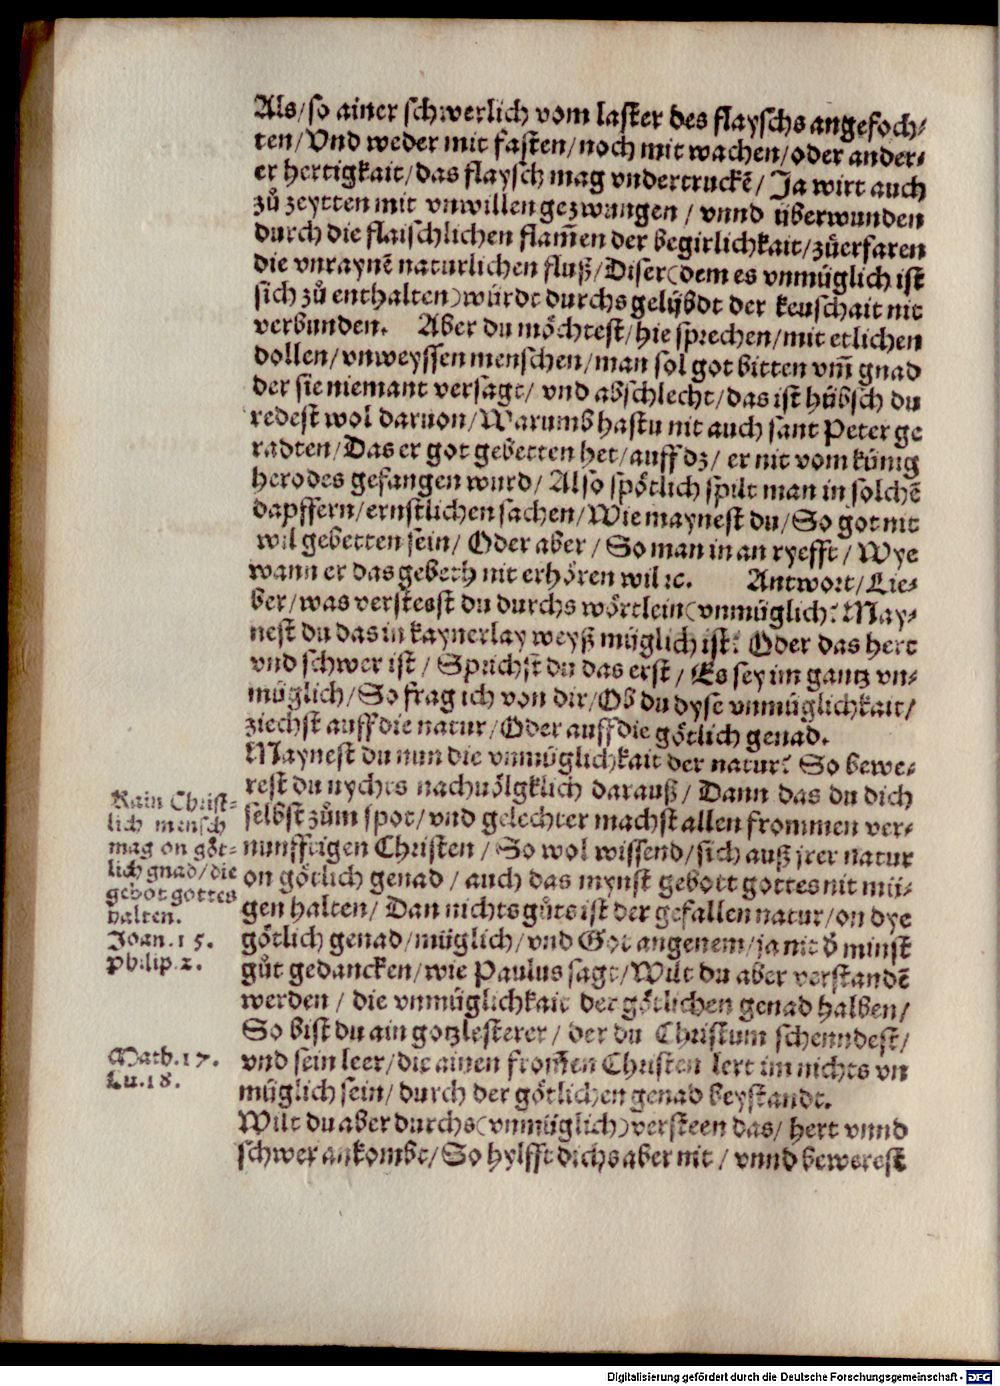 Als/so ainer schwerlich vom laster des flayschs angefoch-
ten/Vnd weder mit fasten/noch mit wachen/oder ander-
er hertigkait/das flaysch mag vndertruckẽ/Ja wirt auch
zů zeytten mit vnwillen gezwungen/vnnd überwunden
durch die flaischlichen flam̃en der begirlichkait/zůerfaren
die vnraynẽ naturlichen fluß/Diser(dem es vnmüglich ist
sich zů enthalten)würdt durchs gelybdt der keuschait nit
verbunden. Aber du möchtest/hie sprechen/mit etlichen
dollen/vnweyssen menschen/man sol got bitten vm̃ gnad
der sie niemant versagt/vnd abschlecht/das ist hübsch du
redest wol daruon/Warumb hastu nit auch sant Peter ge
radten/Das er got gebetten het/auff dz/er nit vom künig
herodes gefangen wurd/Also spötlich spilt man in solchẽ
dapffern/ernstlichen sachen/Wie maynest du/So got nit
wil gebetten sein/Oder aber/So man in an ryefft/Wye
wann er das gebeth nit erhören wil ꝛc. Antwort/Lie-
ber/was versteest du durchs wörtlein(vnmüglich? May-
nest du das in kaynerlay weyß müglich ist? Oder das hert
vnd schwer ist/Sprichst du das erst/Es sey im gantz vn-
müglich/So frag ich von dir/Ob du dyse vnmüglichkait/
ziechst auff die natur/Oder auff die götlich genad.
Maynest du nun die vnmüglichkait der natur? So bewe-
rest du nychts nachuölgklich darauß/Dann das du dich
selbst zům spot/vnd gelechter machst allen frommen ver-
nunfftigen Christen/So wol wissend/sich auß jrer natur
on götlich genad/auch das mynst gebott gottes nit mü-
gen halten/Dan nichts gůts ist der gefallen natur/on dye
götlich genad/müglich/vnd Got angenem/ja nit d̃ minst
gůt gedancken/wie Paulus sagt/Wilt du aber verstandẽ
werden/die vnmüglichkait der götlichen genad halben/
So bist du ain gotzlesterer/der du Christum schenndest/
vnd sein leer/die ainen from̃en Christen lert im nichts vn
müglich sein/durch der götlichen genad beystandt.
Wilt du aber durchs(vnmüglich)versteen das/hert vnnd
schwer ankombt/So hylfft dichs aber nit/vnnd bewerest
Kain Christ-
lich mensch
mag on göt-
lich gnad/die
gebot gottes
halten.
Joan.15.
Philip.2.
Math.17.
Lu.18.
Digitalisierung gefördert durch die Deutsche Forschungsgemeinschaft - DFG